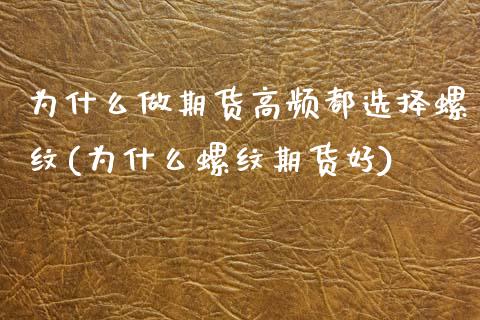 为什么做期货高频都选择螺
纹(为什么螺纹期货好)